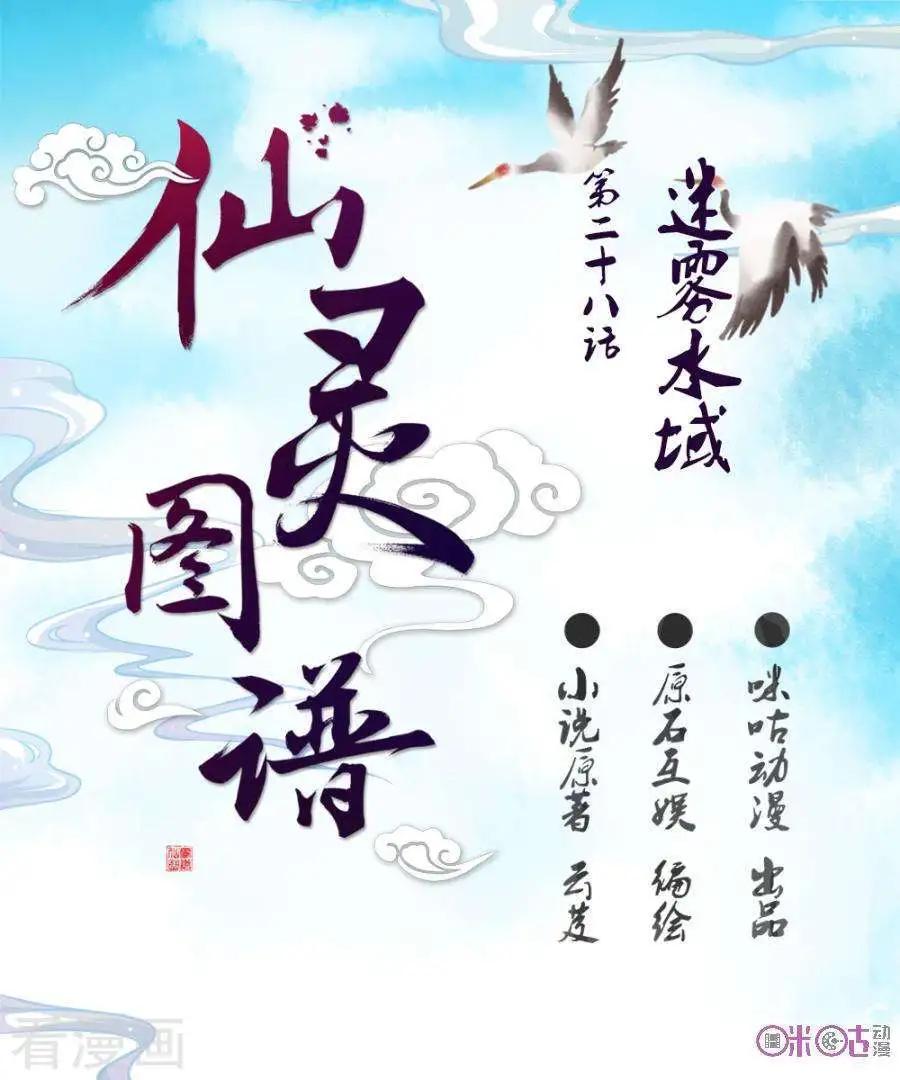 仙灵图谱
第二十八话
迷雾水域
咪咕动漫 出品
原石互娱 编绘
小说原著 云芨
看漫画
咪咕动漫